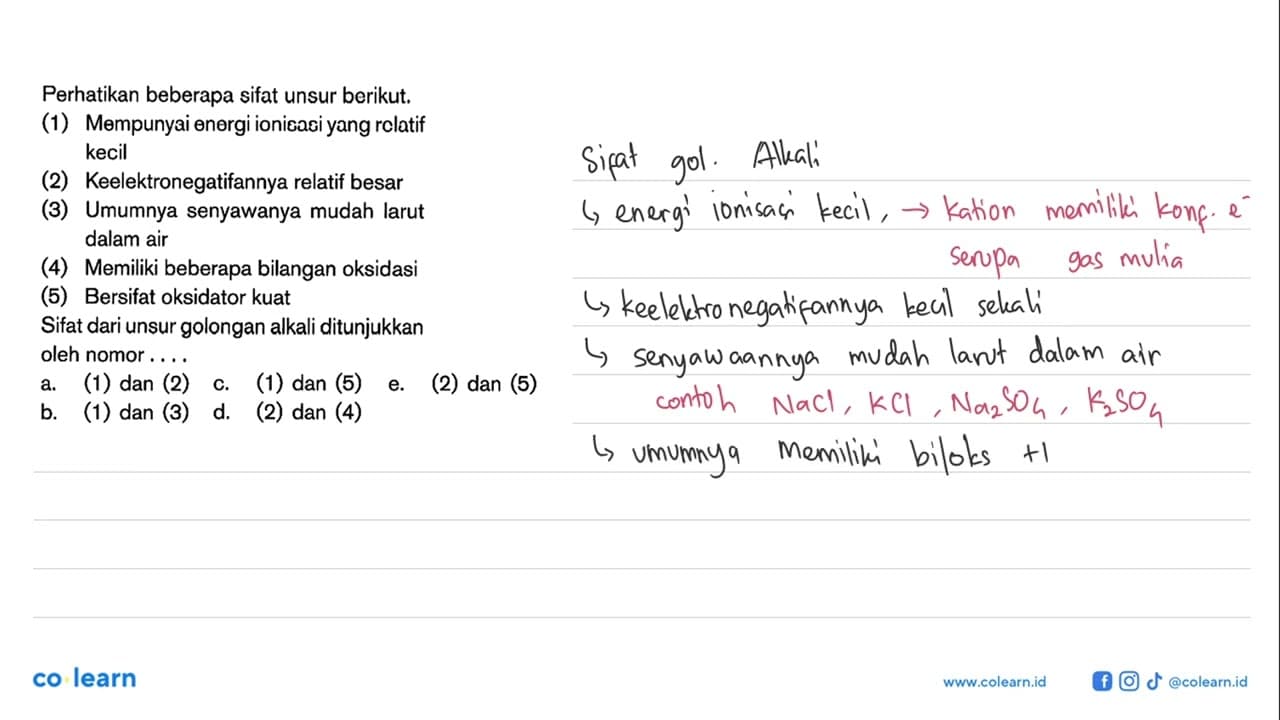 Perhatikan beberapa sifat unsur berikut.
(1) Mempunyai energi ionisasi yang relatif
kecil
(2) Keelektronegatifannya relatif besar
(3) Umumnya senyawanya mudah larut
dalam air
(4) Memiliki beberapa bilangan oksidasi
(5) Bersifat oksidator kuat
Sifat dari unsur golongan alkali ditunjukkan
oleh nomor . . . .
a. (1) dan (2) c. (1) dan (5) e. (2) dan (5)
b. (1) dan (3) d. (2) dan (4)
Sifat gol. Alkali
↳ energi ionisasi kecil, → kation memiliki konf. e⁻
serupa gas mulia
↳ keelektronegatifannya kecil sekali
↳ senyawaannya mudah larut dalam air
contoh NaCl, KCl, Na₂SO₄, K₂SO₄
↳ umumnya memiliki biloks +1
co learn
www.colearn.id
@colearn.id